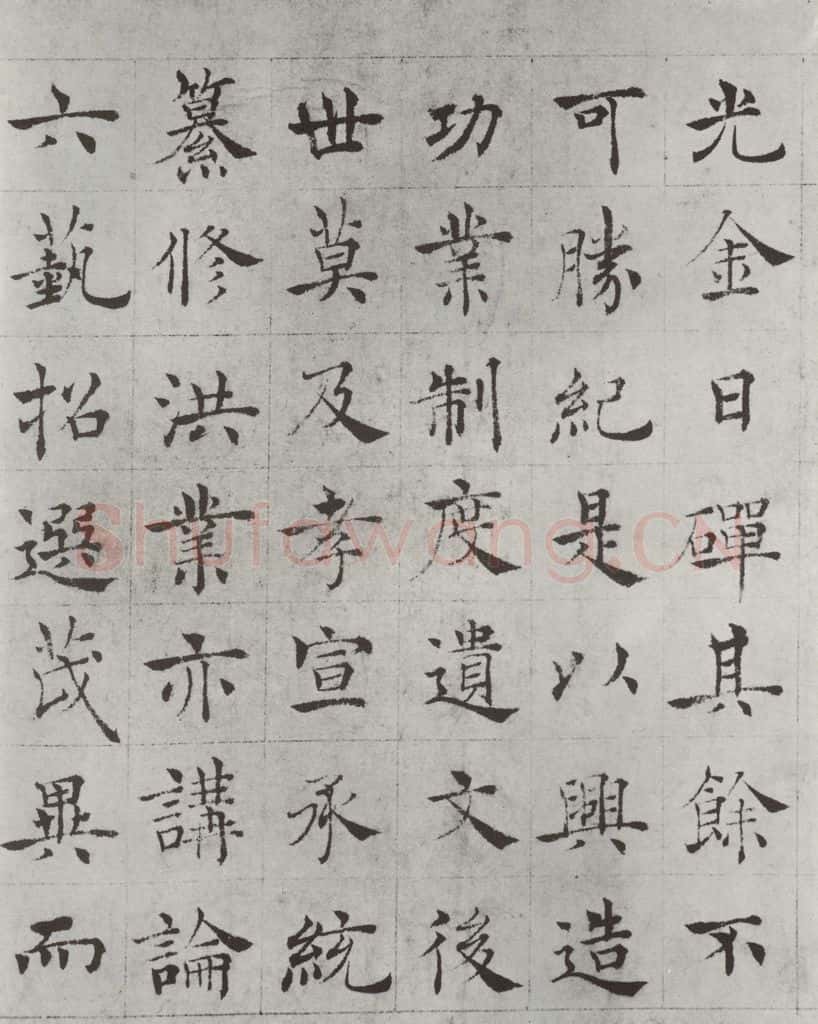 光金日磾其餘不
可勝紀是以興造
功業制度遺文後
世莫及孝宣承統
纂修洪業亦講論
六藝招選茂異而
Shufawang.CN